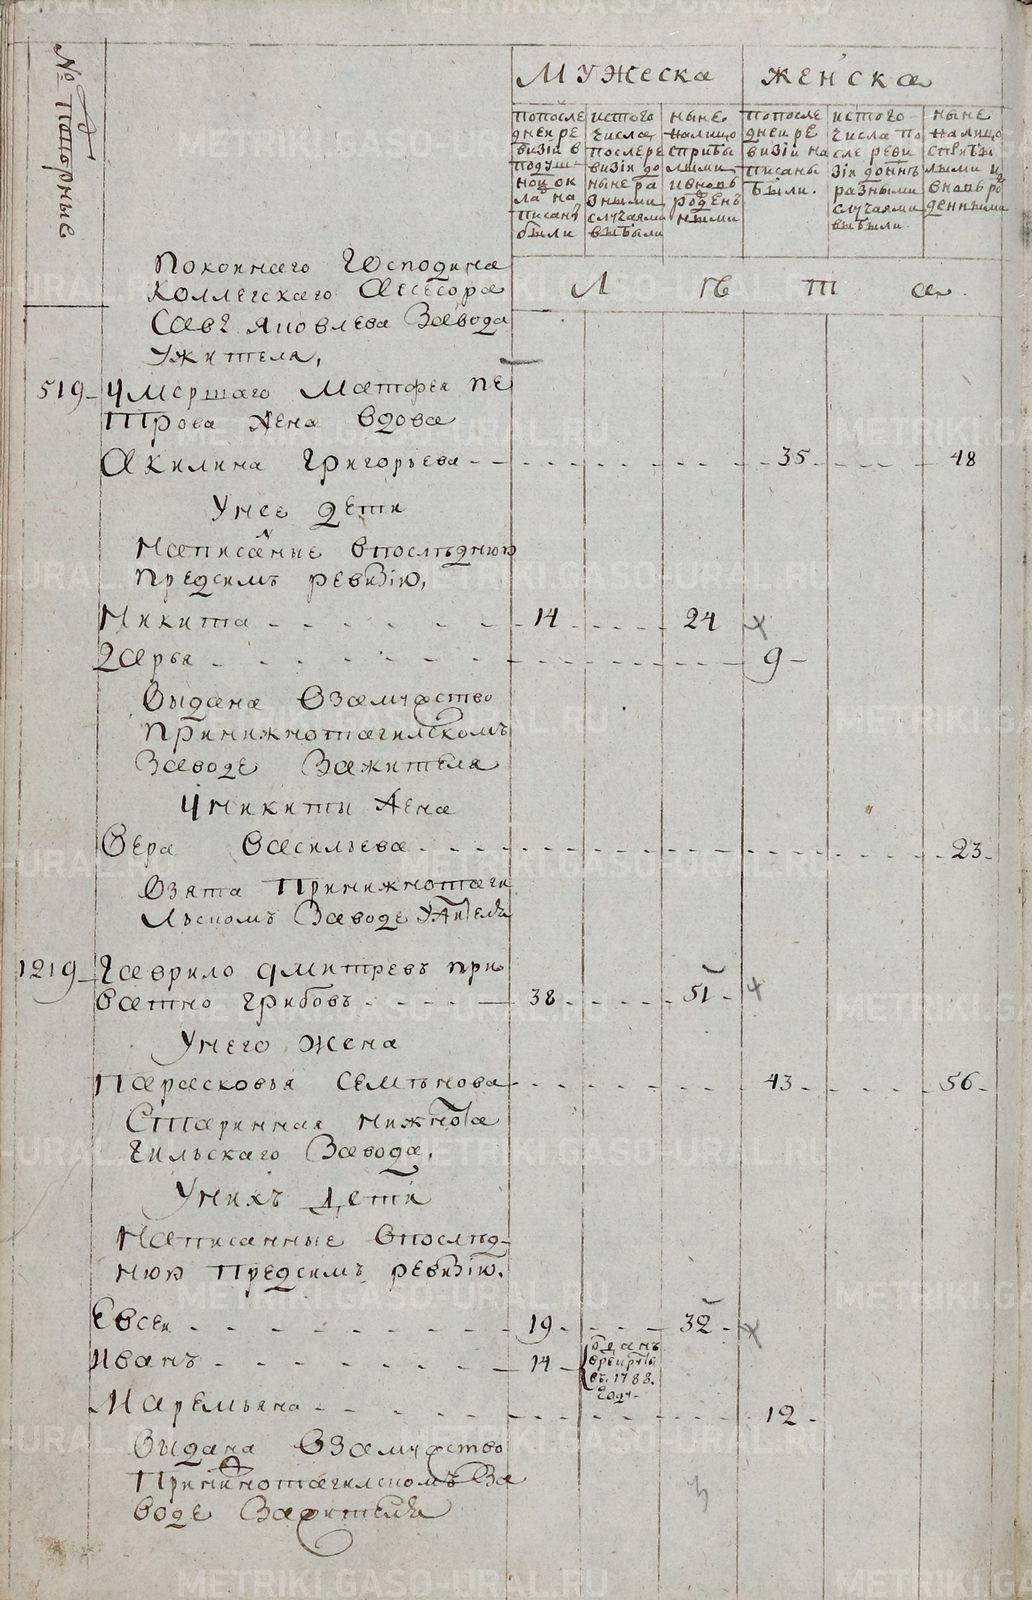 № Попорные
МУЖЕСКА ЖЕНСКА
попосле
дней ре
визіи в
подуш
ной ок
ла на
писан
были
истого
числа
послере
визіи до
ныне ра
зными
случаями
выбыли
ныне
налицо
сприбы
лыми
ивновь
рожден
ными
попосле
дней ре
визіи на
писаны
были.
истого
числа по
сле реви
зіи доннъ
разными
случаями
выбыли.
ныне
налицо
сприбы
лыми и
вновь ро
жденными
Л ѣ т а
Покоинаго Господина
Коллегскаго Асесора
Савы Яковлева Завода
ужителя,
519 Умершаго Матфея Пе
трова жена вдова
Акилина Григорьева 35 48
Унее дети
Написанные впослѣднюю
предсимъ ревизію,
Никита 14 24
Дарья 9
Выдана Взамужство
Принижнотагилскомъ
Заводе Зажителя
Уникиты жена
Вера Васильева 23
Взята Принижнотаги
льскомъ Заводе ужителя
1219 Гаврило Дмитревъ при
ватно Грибовъ 38 51
Унего жена
Парасковья Семѣнова 43 56
Старинная Нижнота
гильскаго Завода,
Унихъ дети
Написанные впослѣд
нюю предсимъ ревизію.
Евсеи 19 32
Иванъ 14
отданъ
врекруты
въ 1788.
году
Маремьяна 12
Выдана Взамужство
Принижнотагилскомъ За
воде Зажителя
METRIKI.GASO-URAL.RU